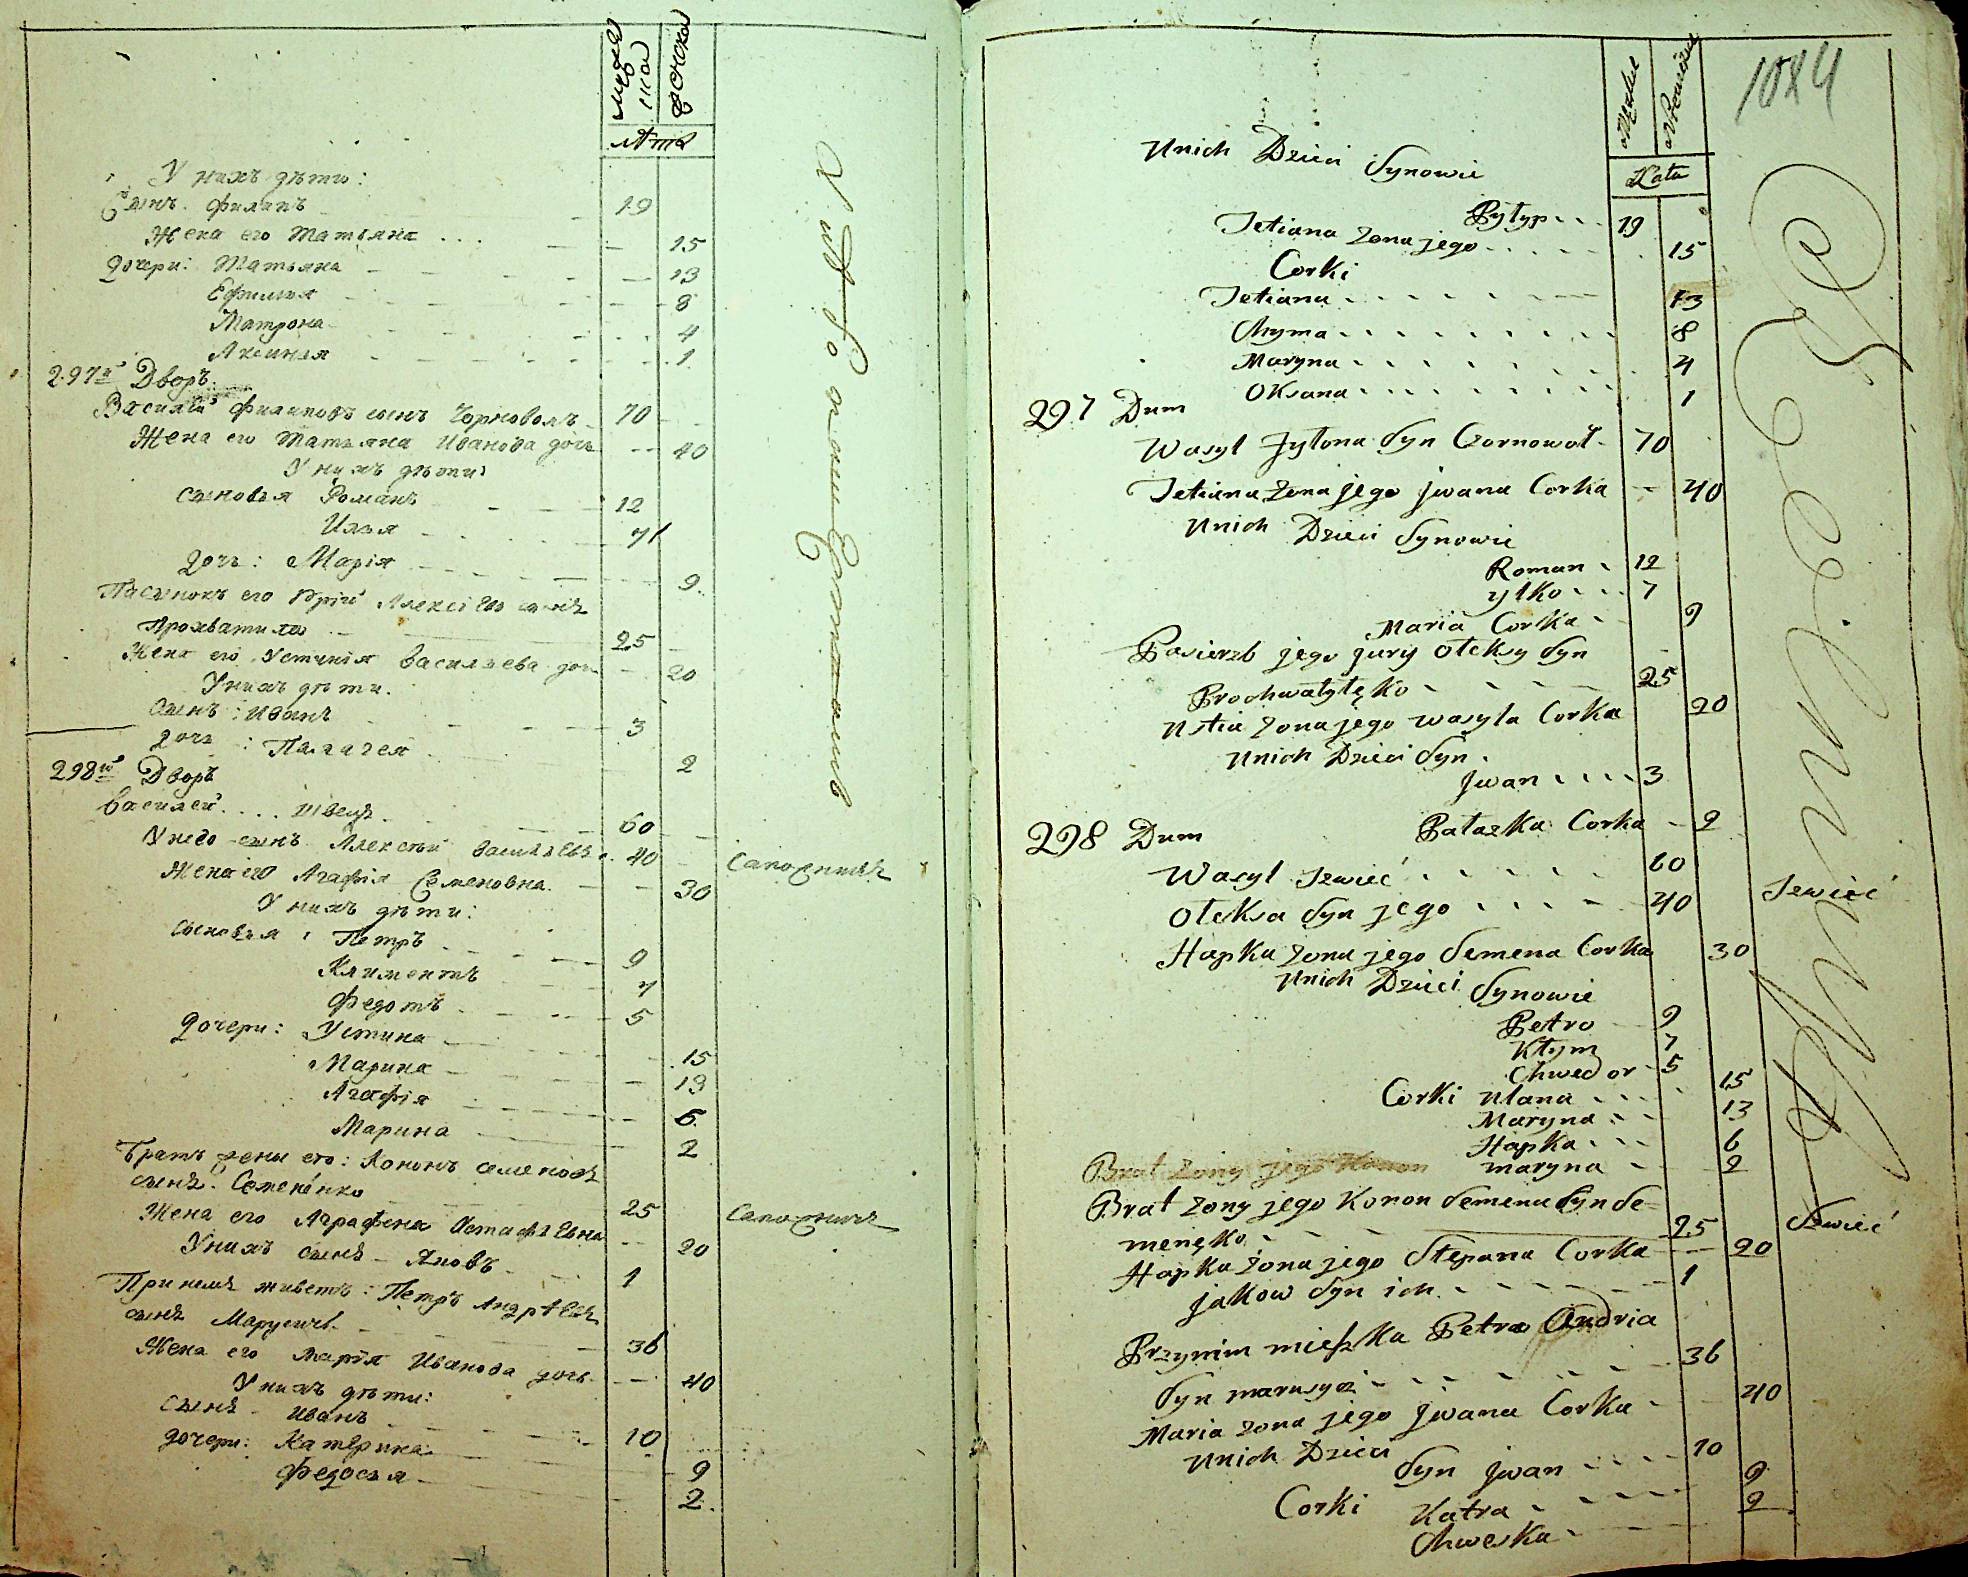 мужеска
женска
Лета
У нихъ дѣти:
Сынъ. Филипъ 19
Жена его Татьяна 15
дочери: Татьяна 13
Ефимия 8
Матрона 4
Аксиния 1
297й Дворъ.
Василий Филиповъ сынъ Чорноволъ 70
Жена его Татьяна Иванова дочь 40
У нихъ дѣти:
сыновья Романъ 12
Илья 7
дочь: Марія 9
Пасынокъ его Юрій Алексіевъ сынъ
Прохватило 25
Жена его Устинія Васильева дочь 20
У нихъ дѣти.
Сынъ: Иванъ 3
дочь: Палагея 2
298й Дворъ
Василей .... Швецъ 60
У него сынъ Алексѣй Васильевъ 40 сапожникъ
Жена его Агафія Семеновна 30
У нихъ дѣти:
Сыновья: Петръ 9
Климентъ 7
Федотъ 5
Дочери: Устина 15
Марина 13
Агафія 6
Марина 2
Братъ жены его: Кононъ Семеновъ
сынъ Семененко 25 сапожникъ
Жена его Аграфена Остафьевна 20
У нихъ сынъ Яковъ 1
При немъ живетъ: Петръ Андрѣевъ
сынъ Марусичъ 36
Жена его Марія Иванова дочь 40
У нихъ дѣти:
Сынъ Иванъ 10
дочери: Катерина 9
Федосья 2.
1084
Męzkie
Niewieście
Lata
Unich Dzieci Synowie
Pyłyp 19
Tetiana Zona jego 15
Corki
Tetiana 13
Chyma 8
Maryna 4
Oksana 1
297 Dum
Wasyl Pyłypa Syn Czornowoł 70
Tetiana Zona jego Jwana Corka 40
Unich Dzieci Synowie
Roman 12
yłko 7
Maria Corka 9
Pasierzb jego Juryj Ołeksy Syn
Prochwatyłęko 25
Ustia Zona jego Wasyla Corka 20
Unich Dzieci Syn
Jwan 3
Pałazka Corka 2
298 Dum
Wasyl Szwieć 60
Ołeksa Syn jego 40 Szwieć
Hapka Zona jego Semena Corka 30
Unich Dzieci Synowie
Petro 9
Kłym 7
Chwedor 5
Corki Ulana 15
Maryna 13
Hapka 6
maryna 2
Brat Zony jego Konon
Brat Zony jego Konon Semena Syn Se=
menęko 25 Szwieć
Hapka Zona jego Stepana Corka 20
Jakow Syn ich 1
Przynim mieszka Petro Andria
Syn marusycz 36
Maria Zona jego Jwana Corka 40
Unich Dzieci
Syn Jwan 10
Corki Katra 9
Chweska 2